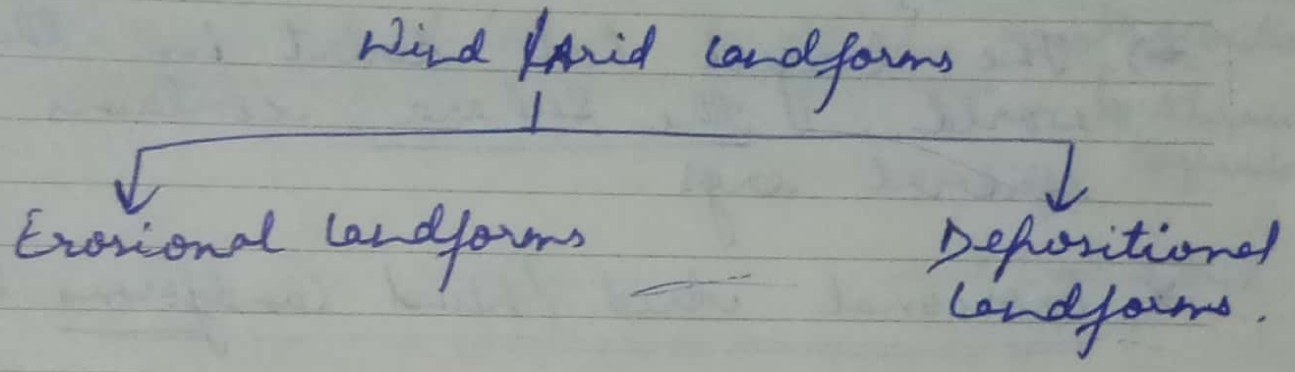 Wind /Arid landforms
Erosional landforms
Depositional
landforms.